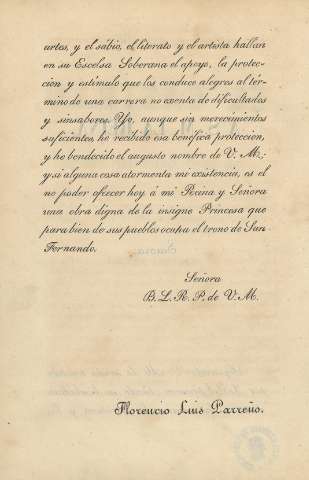 artes, y el sábio, el literato y el artista hallan
en su Escelsa Soberana el apoyo, la protec-
cion y estimulo que los conduce alegres al tér-
mino de una carrera no exenta de dificultades
y sinsabores. Yo, aunque sin merecimientos
suficientes, he recibido esa benéfica proteccion,
y he bendecido el augusto nombre de V. M.;
y si alguna cosa atormenta mi existencia, es el
no poder ofrecer hoy á mi Reina y Señora
una obra digna de la insigne Princesa que
para bien de sus pueblos ocupa el trono de San
Fernando.
Señora
B. L. R. P. de V. M.
Florencio Luis Parreño.